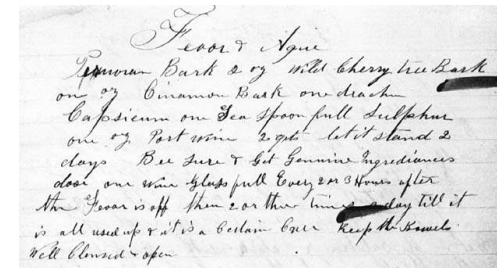 Fevor & Ague
Peruvian Bark 2 oz Wild Cherry tree Bark
one oz Cinamon Bark one drachm
Capsicum one Tea Spoon full Sulphur
one oz Port Wine 2 qts let it stand 2
days Bee Sure & Get Genuine Ingrediances
dose one Wine Glass full Every 2 or 3 Hours after
the Fevor is off then 2 or three times a day till it
is all used up & it is a Certain Cure Keep the Bowels
Well Clensed & open